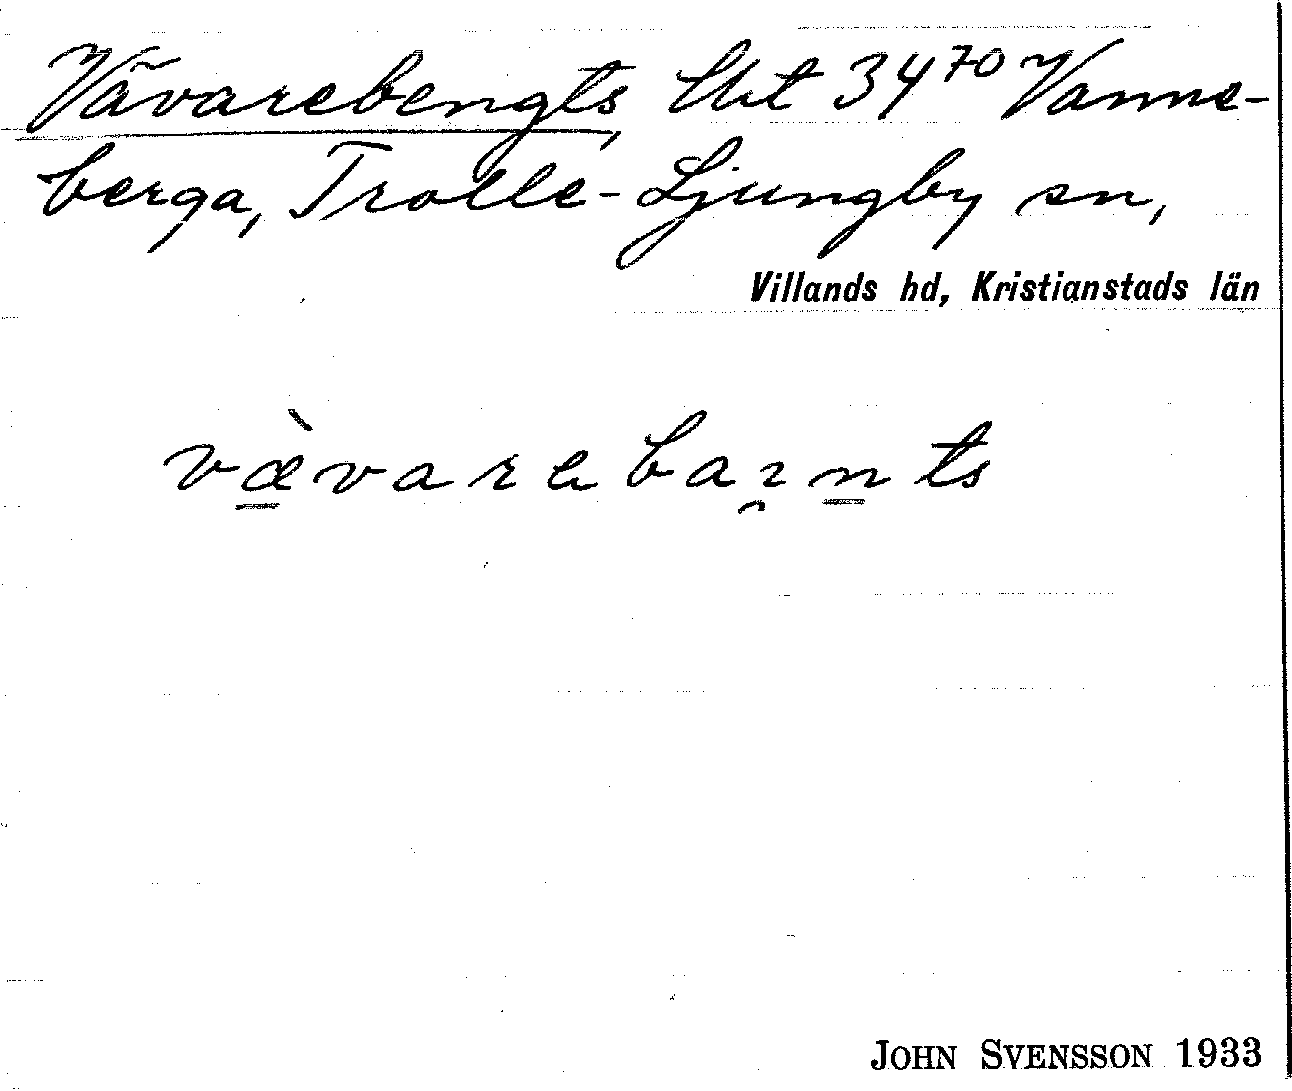 Vävarebengts, tht 34⁷⁰ Vanne-
berga, Trolle-Ljungby sn,
Villands hd, Kristianstads län
væ̀varebaɿnts
JOHN SVENSSON 1933